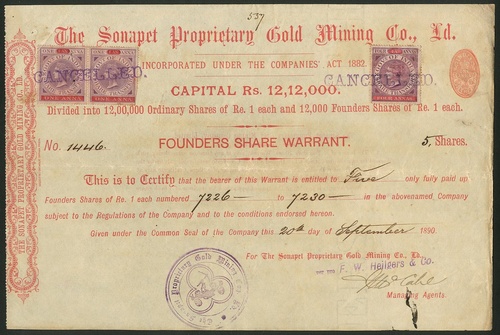 537
The Sonapet Proprietary Gold Mining Co., Ld.
INCORPORATED UNDER THE COMPANIES' ACT 1882.
CANCELLED.
CANCELLED.
CAPITAL Rs. 12,12,000.
Divided into 12,00,000 Ordinary Shares of Re. 1 each and 12,000 Founders Shares of Re. 1 each.
FOUNDERS SHARE WARRANT.
No. 1446. 5, Shares.
This is to Certify that the bearer of this Warrant is entitled to Five only fully paid up
Founders Shares of Re. 1 each numbered 7226 — to 7230 — in the abovenamed Company
subject to the Regulations of the Company and to the conditions endorsed hereon.
Given under the Common Seal of the Company this 20th day of September 1890.
For The Sonapet Proprietary Gold Mining Co., Ld.
F. W. Heilgers & Co.
Managing Agents.
THE SONAPET PROPRIETARY GOLD MINING CO., LD.
Proprietary Gold Mining